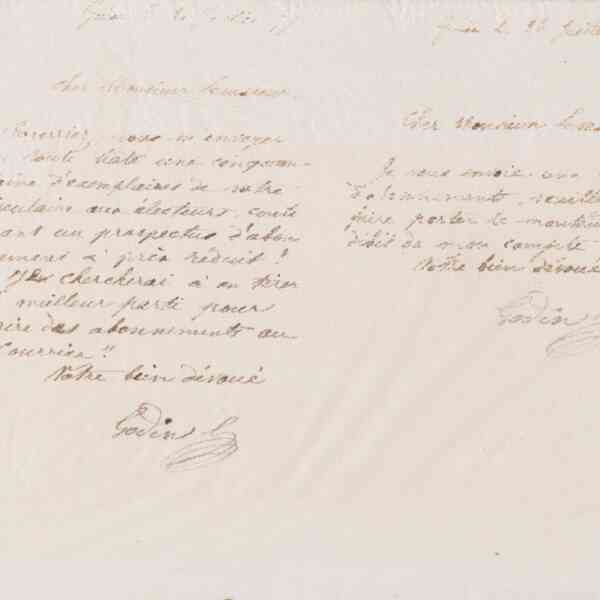 Cher Monsieur
Pourriez vous m'envoyer
toute une cinquan
taine d'exemplaires de votre
circulaire aux électeurs, conte
nant un prospectus d'abon
nement à prix réduit!
Je chercherai à en tirer
meilleur parti pour
faire des abonnements au
Courrier"
Votre bien dévoué
Godin
Guise le 26
Cher Monsieur
Je vous envoie une
d'abonnements, veuillez
faire porter le montant
débit de mon compte
Votre bien dévoué
Godin